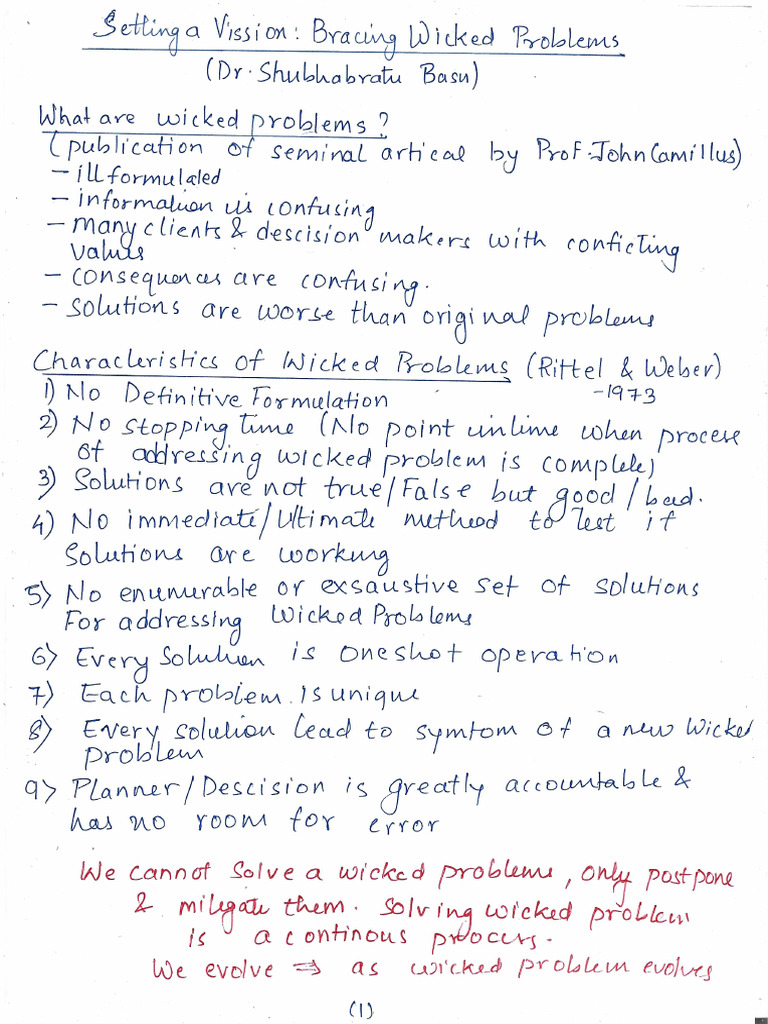 Setting a Vission: Bracing Wicked Problems
(Dr. Shubhabratu Basu)
What are wicked problems?
(publication of seminal artical by Prof. John Camillus)
- ill formulated
- information is confusing
- many clients & descision makers with conficting
values
- consequences are confusing.
- solutions are worse than original problems
Characteristics of Wicked Problems (Rittel & Weber)
-1973
1) No Definitive Formulation
2) No stopping time (No point in time when process
of addressing wicked problem is complete)
3) Solutions are not true/False but good/bad.
4) No immediate/Ultimate method to test if
Solutions are working
5) No enumurable or exsaustive set of solutions
For addressing Wicked Problems
6) Every Solution is one shot operation
7) Each problem is unique
8) Every solution lead to symtom of a new Wicked
problem
9) Planner/Descision is greatly accountable &
has no room for error
We cannot solve a wicked problems, only postpone
& mitigate them. Solving wicked problem
is a continous process.
We evolve ⇒ as wicked problem evolves
(1)